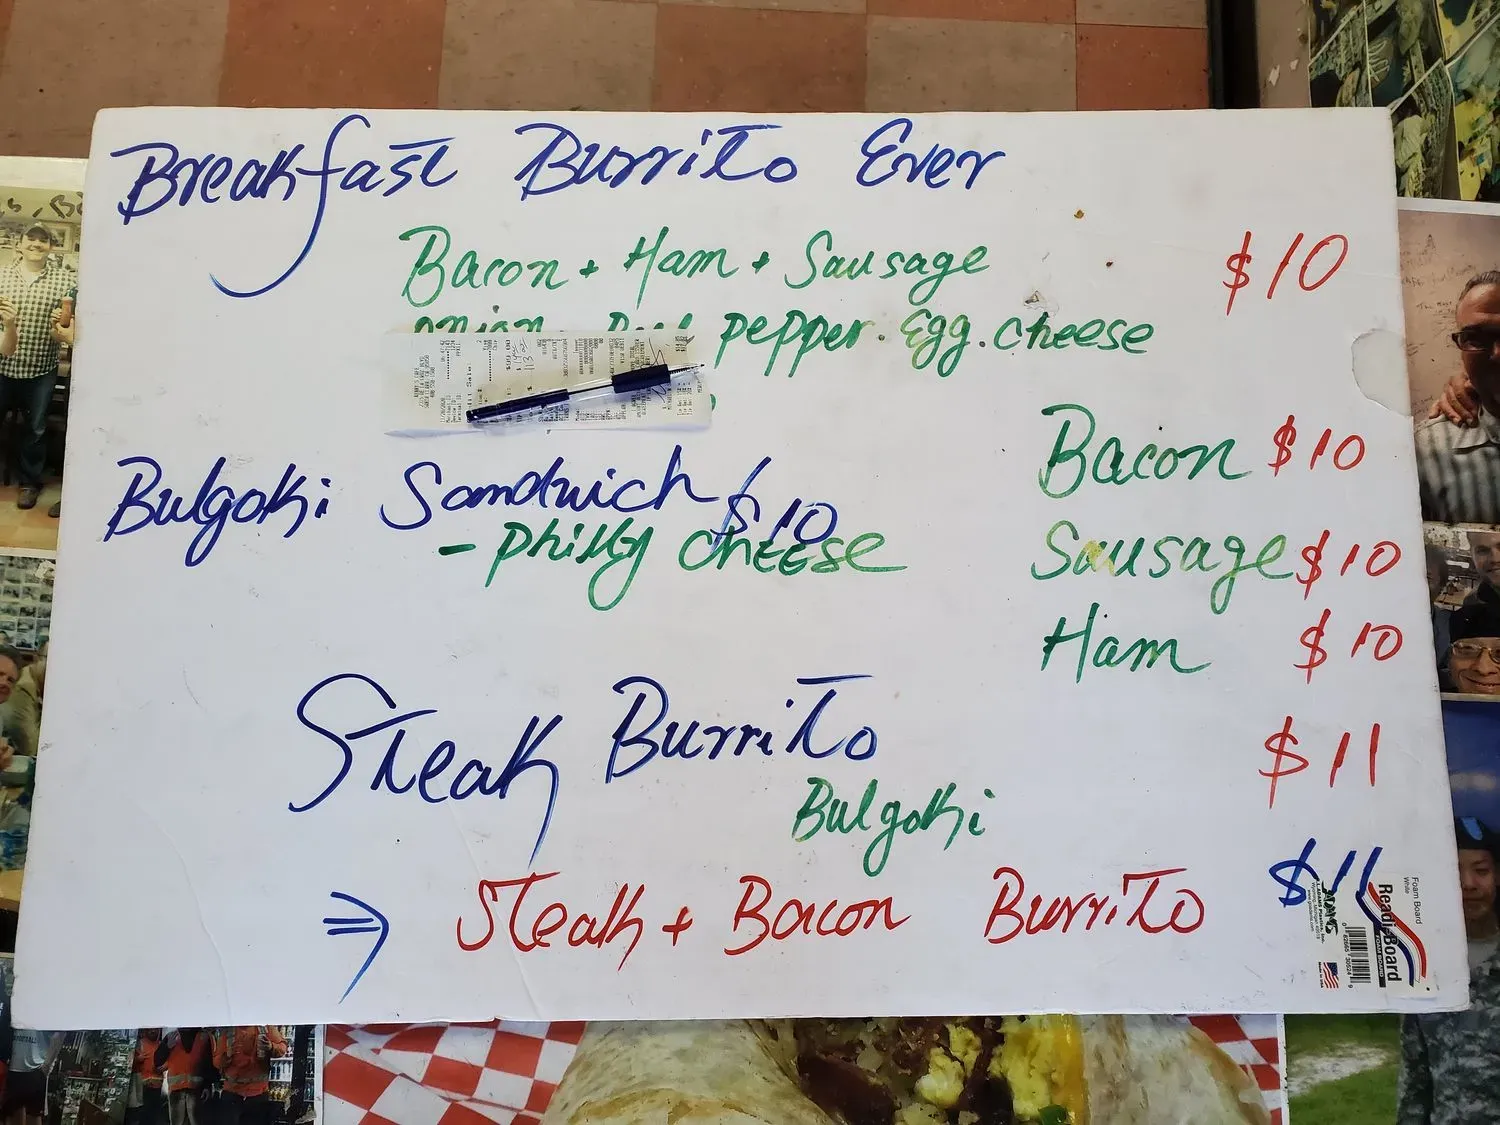 Breakfast Burrito Ever
Bacon + Ham + Sausage $10
onion pepper. Egg. cheese
Bacon $10
Bulgoki Sandwich $10
- Philly cheese
Sausage $10
Ham $10
Steak Burrito $11
Bulgoki
⇒ Steak + Bacon Burrito $11
Foam Board
White
Readi-Board
FOAM BOARD